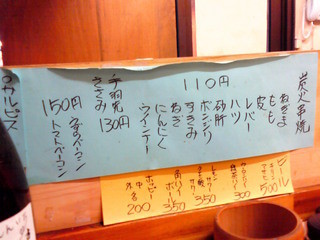 炭火串焼
110円
ねぎま
もも
皮
レバー
ハツ
砂肝
ボンジリ
すきみ
ねぎ
にんにく
ウインナー
130円
手羽先
ささみ
150円
トマトベーコン
ビール
500
350
350
ホッピー
200
カルピス